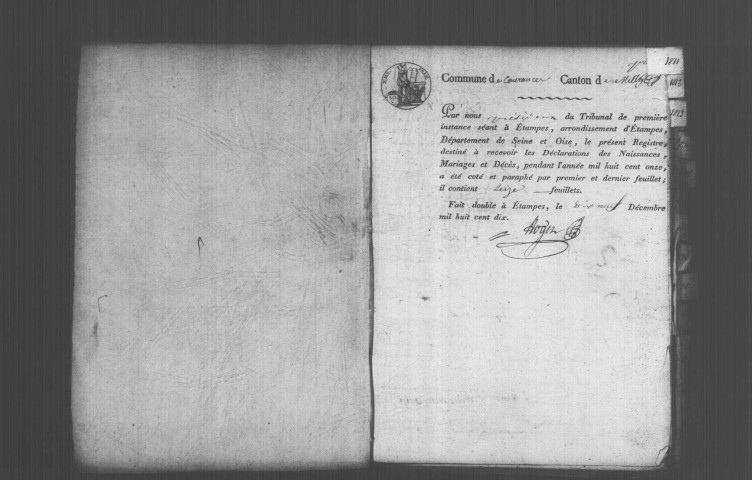 1811
Commune de Courances Canton de Milly
1812
1813
Par nous du Tribunal de première
instance séant à Étampes, arrondissement d'Étampes,
Département de Seine et Oise, le présent Registre,
destiné à recevoir les Déclarations des Naissances,
Mariages et Décès, pendant l'année mil huit cent onze,
a été coté et paraphé par premier et dernier feuillet;
il contient seize feuillets.
Fait double à Étampes, le dix neuf Décembre
mil huit cent dix.